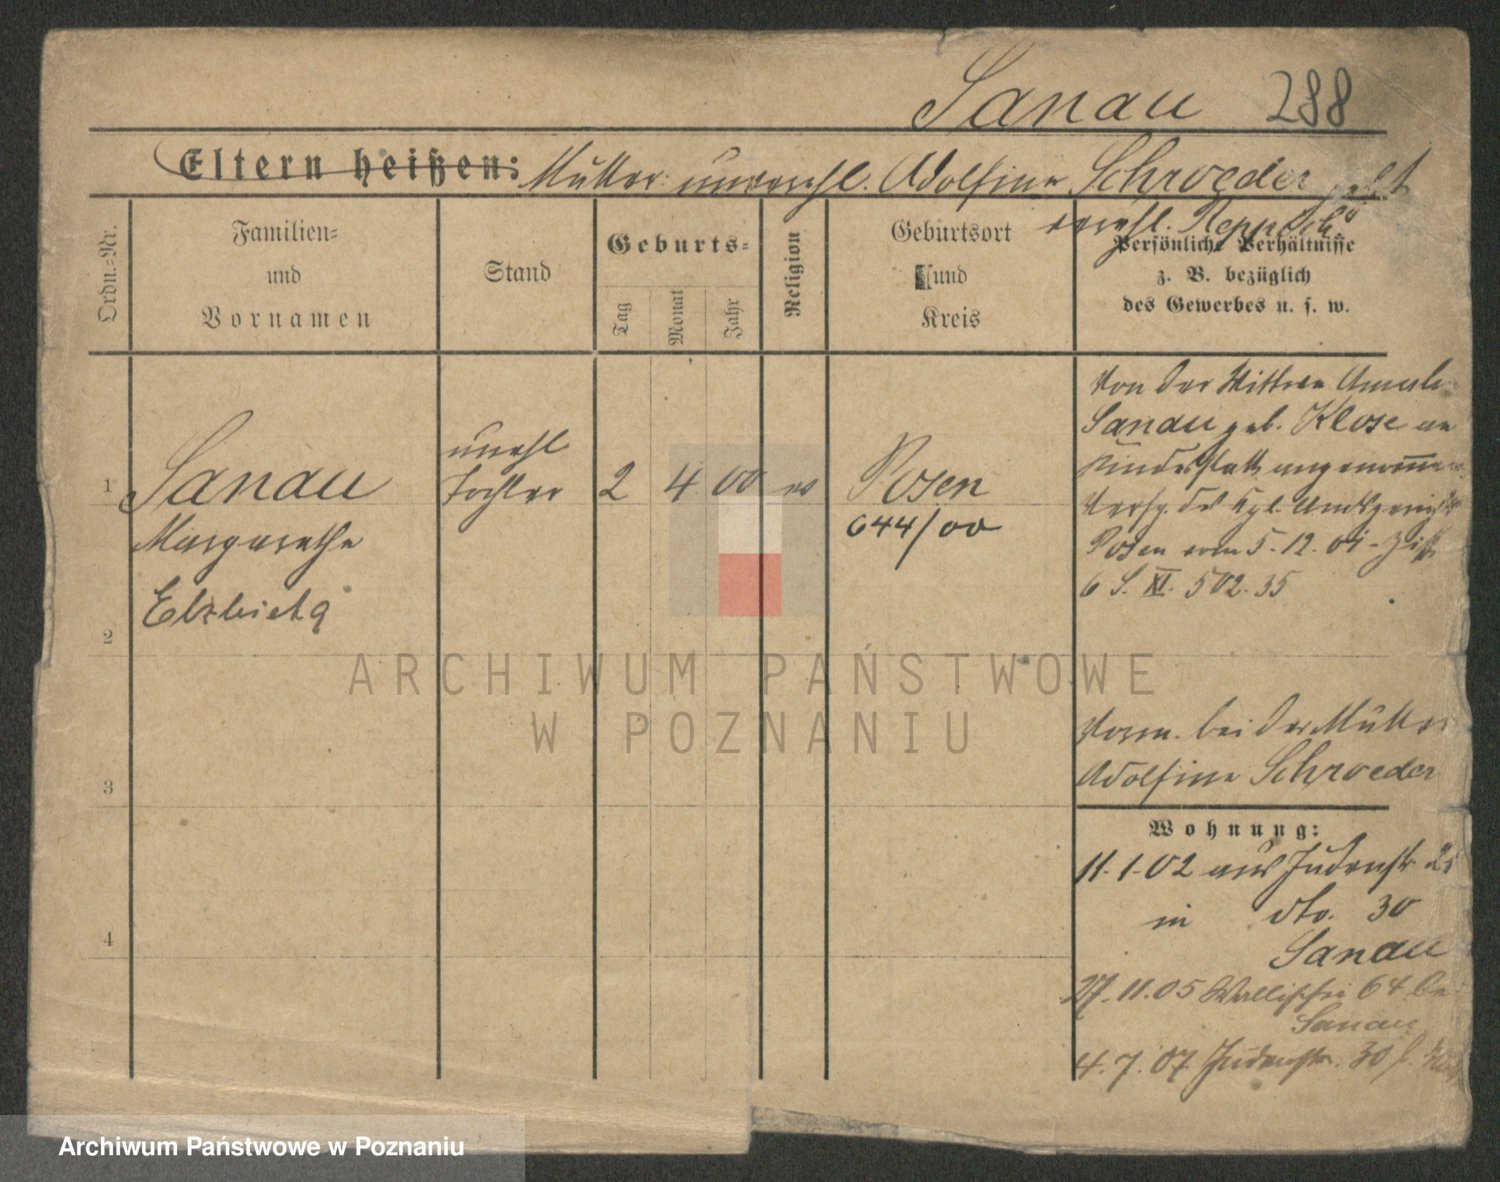 Sanau 288
Eltern heißen: Mutter unverehl. Adolfine Schroeder jetzt
verehl. Reppich
Ordn.-Nr.
Familien-
und
Vornamen
Stand
Geburts-
Tag
Monat
Jahr
Religion
Geburtsort
und
Kreis
Persönliche Verhältnisse
z. B. bezüglich
des Gewerbes u. s. w.
1
Sanau
Margarethe
Elzbieta
unehl
Tochter
2 4 00 ev
Posen
644/00
Von der Wittwe
Sanau geb. Klose an
Kindesstatt angenommen
Verfg. des Kgl. Amtsgerichts
Posen vom 5.12.01-
6 S. XI. 502.35
2
Vorm. bei der Mutter
Adolfine Schroeder
3
4
Wohnung:
11.1.02 aus Judenstr
in dto. 30
Sanau
27.11.05 Wallischei 64 be
Sanau
4.7.07 Judenstr. 30
ARCHIWUM PAŃSTWOWE
W POZNANIU
Archiwum Państwowe w Poznaniu